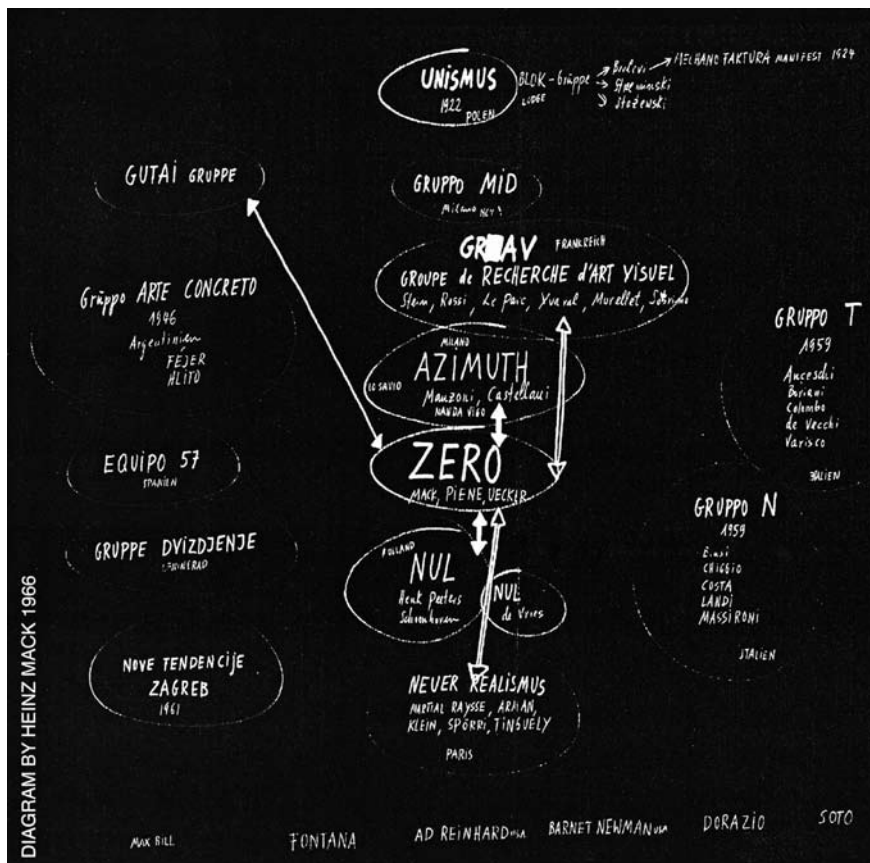 UNISMUS
1922
POLEN
BLOK-Gruppe
LODGE
MECHANO FAKTURA MANIFEST 1924
Stażewski
GUTAI GRUPPE
GRUPPO MID
Milano
GRAV FRANKREICH
GROUPE de RECHERCHE d'ART VISUEL
Stein, Rossi, Le Parc, Yvaral, Morellet, Sobrino
Gruppo ARTE CONCRETO
1946
Argentinien
FEJER
HLITO
MILANO
AZIMUTH
LO SAVIO
Manzoni, Castellani
NANDA VIGO
GRUPPO T
1959
Anceschi
Boriani
Colombo
de Vecchi
Varisco
ITALIEN
EQUIPO 57
SPANIEN
ZERO
MACK, PIENE, UECKER
GRUPPO N
1959
Biasi
CHIGGIO
COSTA
LANDI
MASSIRONI
ITALIEN
GRUPPE DVIZDJENJE
LENINGRAD
HOLLAND
NUL
Henk Peeters
Schoonhoven
NUL
de Vries
NOVE TENDENCIJE
ZAGREB
1961
NEUER REALISMUS
MARTIAL RAYSSE, ARMAN,
KLEIN, SPÖRRI, TINGUELY
PARIS
MAX BILL
FONTANA
AD REINHARD USA
BARNET NEWMAN USA
DORAZIO
SOTO
DIAGRAM BY HEINZ MACK 1966